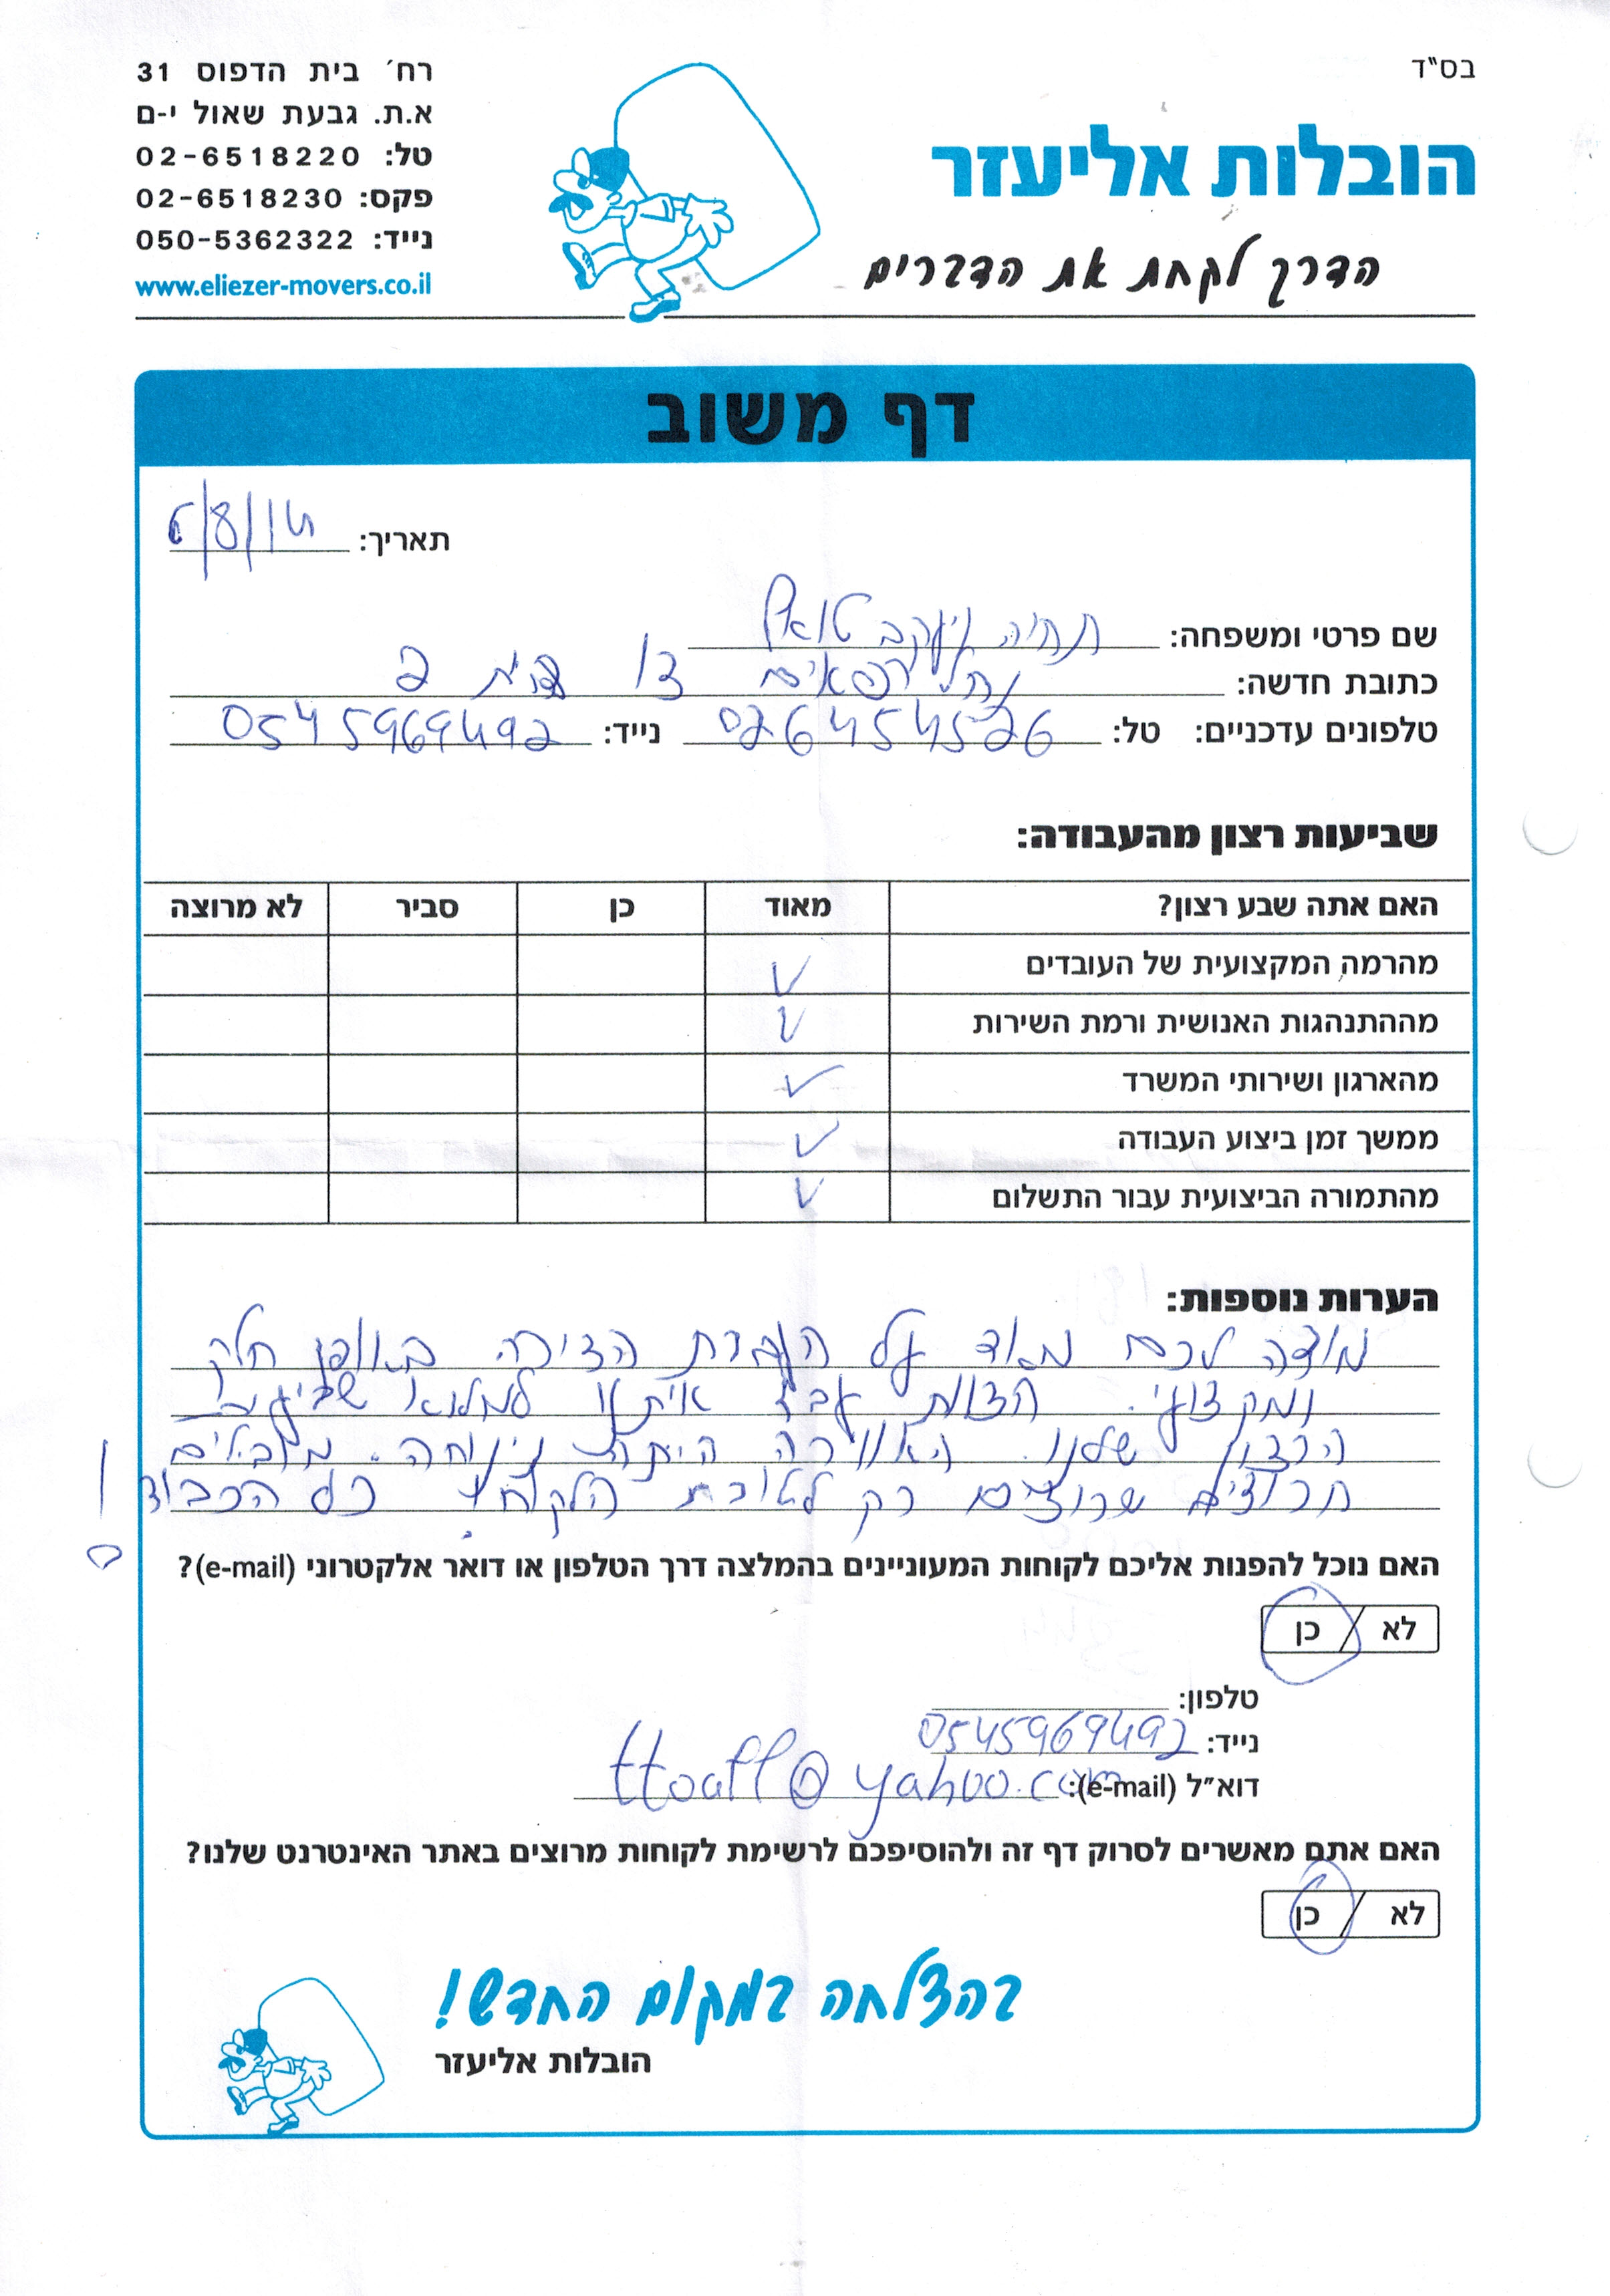 בס"ד
הובלות אליעזר
הדרך לקחת את הדברים
רח׳ בית הדפוס 31
א.ת. גבעת שאול י-ם
טל: 02-6518220
פקס: 02-6518230
נייד: 050-5362322
www.eliezer-movers.co.il
דף משוב
תאריך: 5/8/14
שם פרטי ומשפחה: תחיה ויעקב טואף
כתובת חדשה: נחל רפאים 13 בית 2
טלפונים עדכניים: טל: 026454526 נייד: 0545969492
שביעות רצון מהעבודה:
האם אתה שבע רצון? מאוד כן סביר לא מרוצה
מהרמה המקצועית של העובדים ✓
מההתנהגות האנושית ורמת השירות ✓
מהארגון ושירותי המשרד ✓
ממשך זמן ביצוע העבודה ✓
מהתמורה הביצועית עבור התשלום ✓
הערות נוספות:
תודה לכם מאוד על העברת הדירה באופן חלק
ומקצועי. הצוות עבד איתנו למלוא שביעות
הרצון שלנו. האווירה היתה נינוחה. מובילים
חרוצים שרוצים רק לטובת הלקוח. כל הכבוד!
האם נוכל להפנות אליכם לקוחות המעוניינים בהמלצה דרך הטלפון או דואר אלקטרוני (e-mail)?
לא / כן
טלפון:
נייד: 0545969492
דוא"ל (e-mail): ttoaff@yahoo.com
האם אתם מאשרים לסרוק דף זה ולהוסיפכם לרשימת לקוחות מרוצים באתר האינטרנט שלנו?
לא / כן
בהצלחה במקום החדש!
הובלות אליעזר